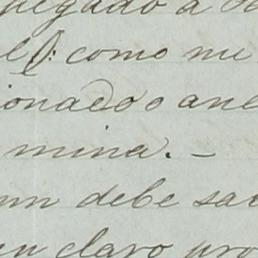 pegado a
como me
ionado o ane
mina. –
un debe sa
un claro pro